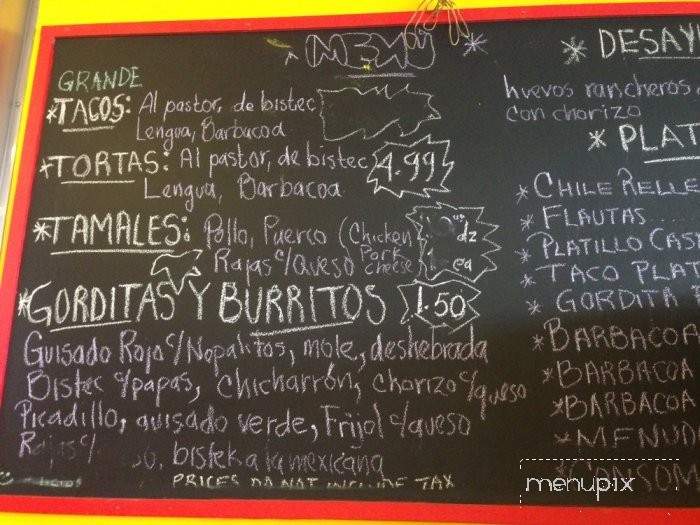 MENU
GRANDE
*TACOS: Al pastor, de bistec
Lengua, Barbacoa
*TORTAS: Al pastor, de bistec 4.99
Lengua, Barbacoa
*TAMALES: Pollo, Puerco (Chicken dz
Rajas c/Queso Pork cheese ea
*GORDITAS Y BURRITOS 1.50
Guisado Rojo c/Nopalitos, mole, deshebrada
Bistec c/papas, Chicharrón, Chorizo c/queso
Picadillo, guisado verde, Frijol c/queso
bistek a la mexicana
PRICES DO NOT INCLUDE TAX
* DESAY
huevos rancheros
con chorizo
* PLAT
* CHILE RELLE
* FLAUTAS
* PLATILLO CAS
* TACO PLAT
* GORDITA
* BARBACOA
* BARBACOA
* BARBACOA
* MENUD
* CONSOM
menupix